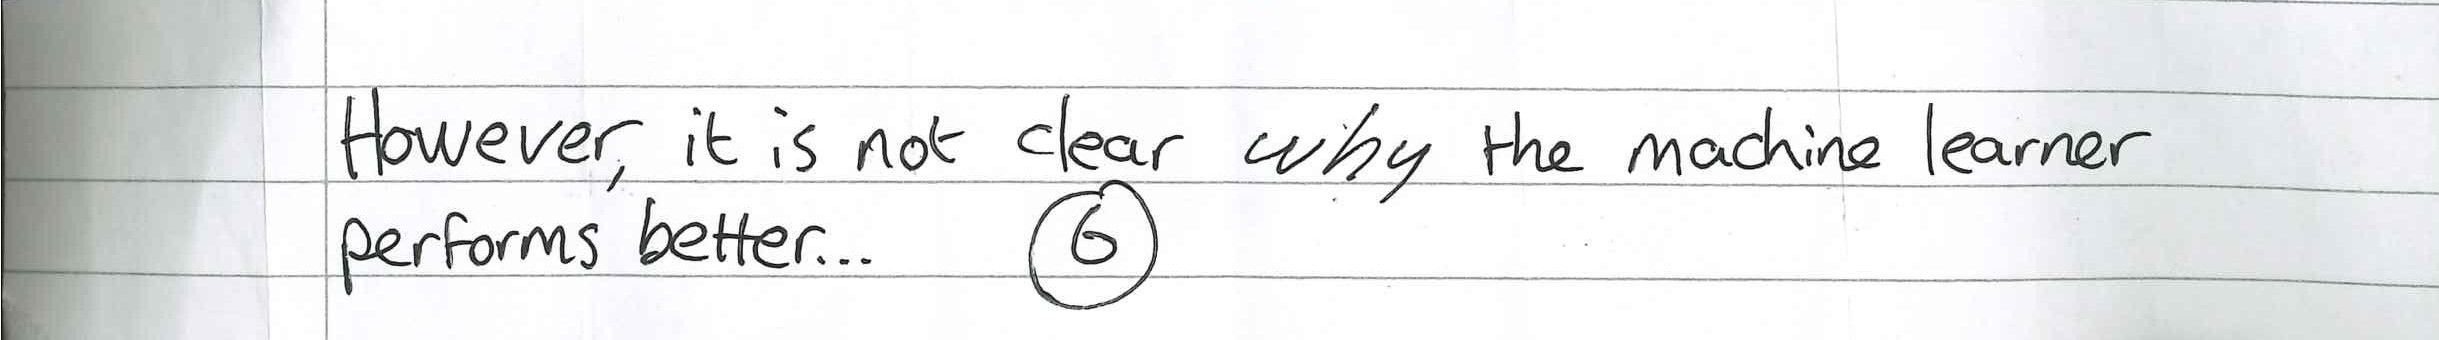 However, it is not clear why the machine learner
performs better... 6